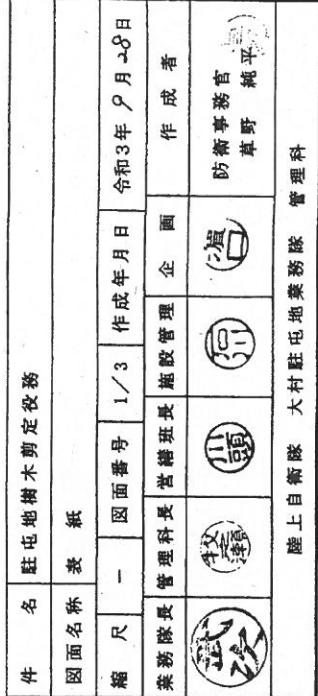 件 名 駐屯地樹木剪定役務
図面名称 表 紙
縮 尺 － 図面番号 1/3 作成年月日 令和3年9月28日
業務隊長 管理科長 営繕班長 施設管理 企 画 作 成 者
武次 牧瀬 川頭 溝口 防衛事務官
草野 純平
陸上自衛隊 大村駐屯地業務隊 管理科